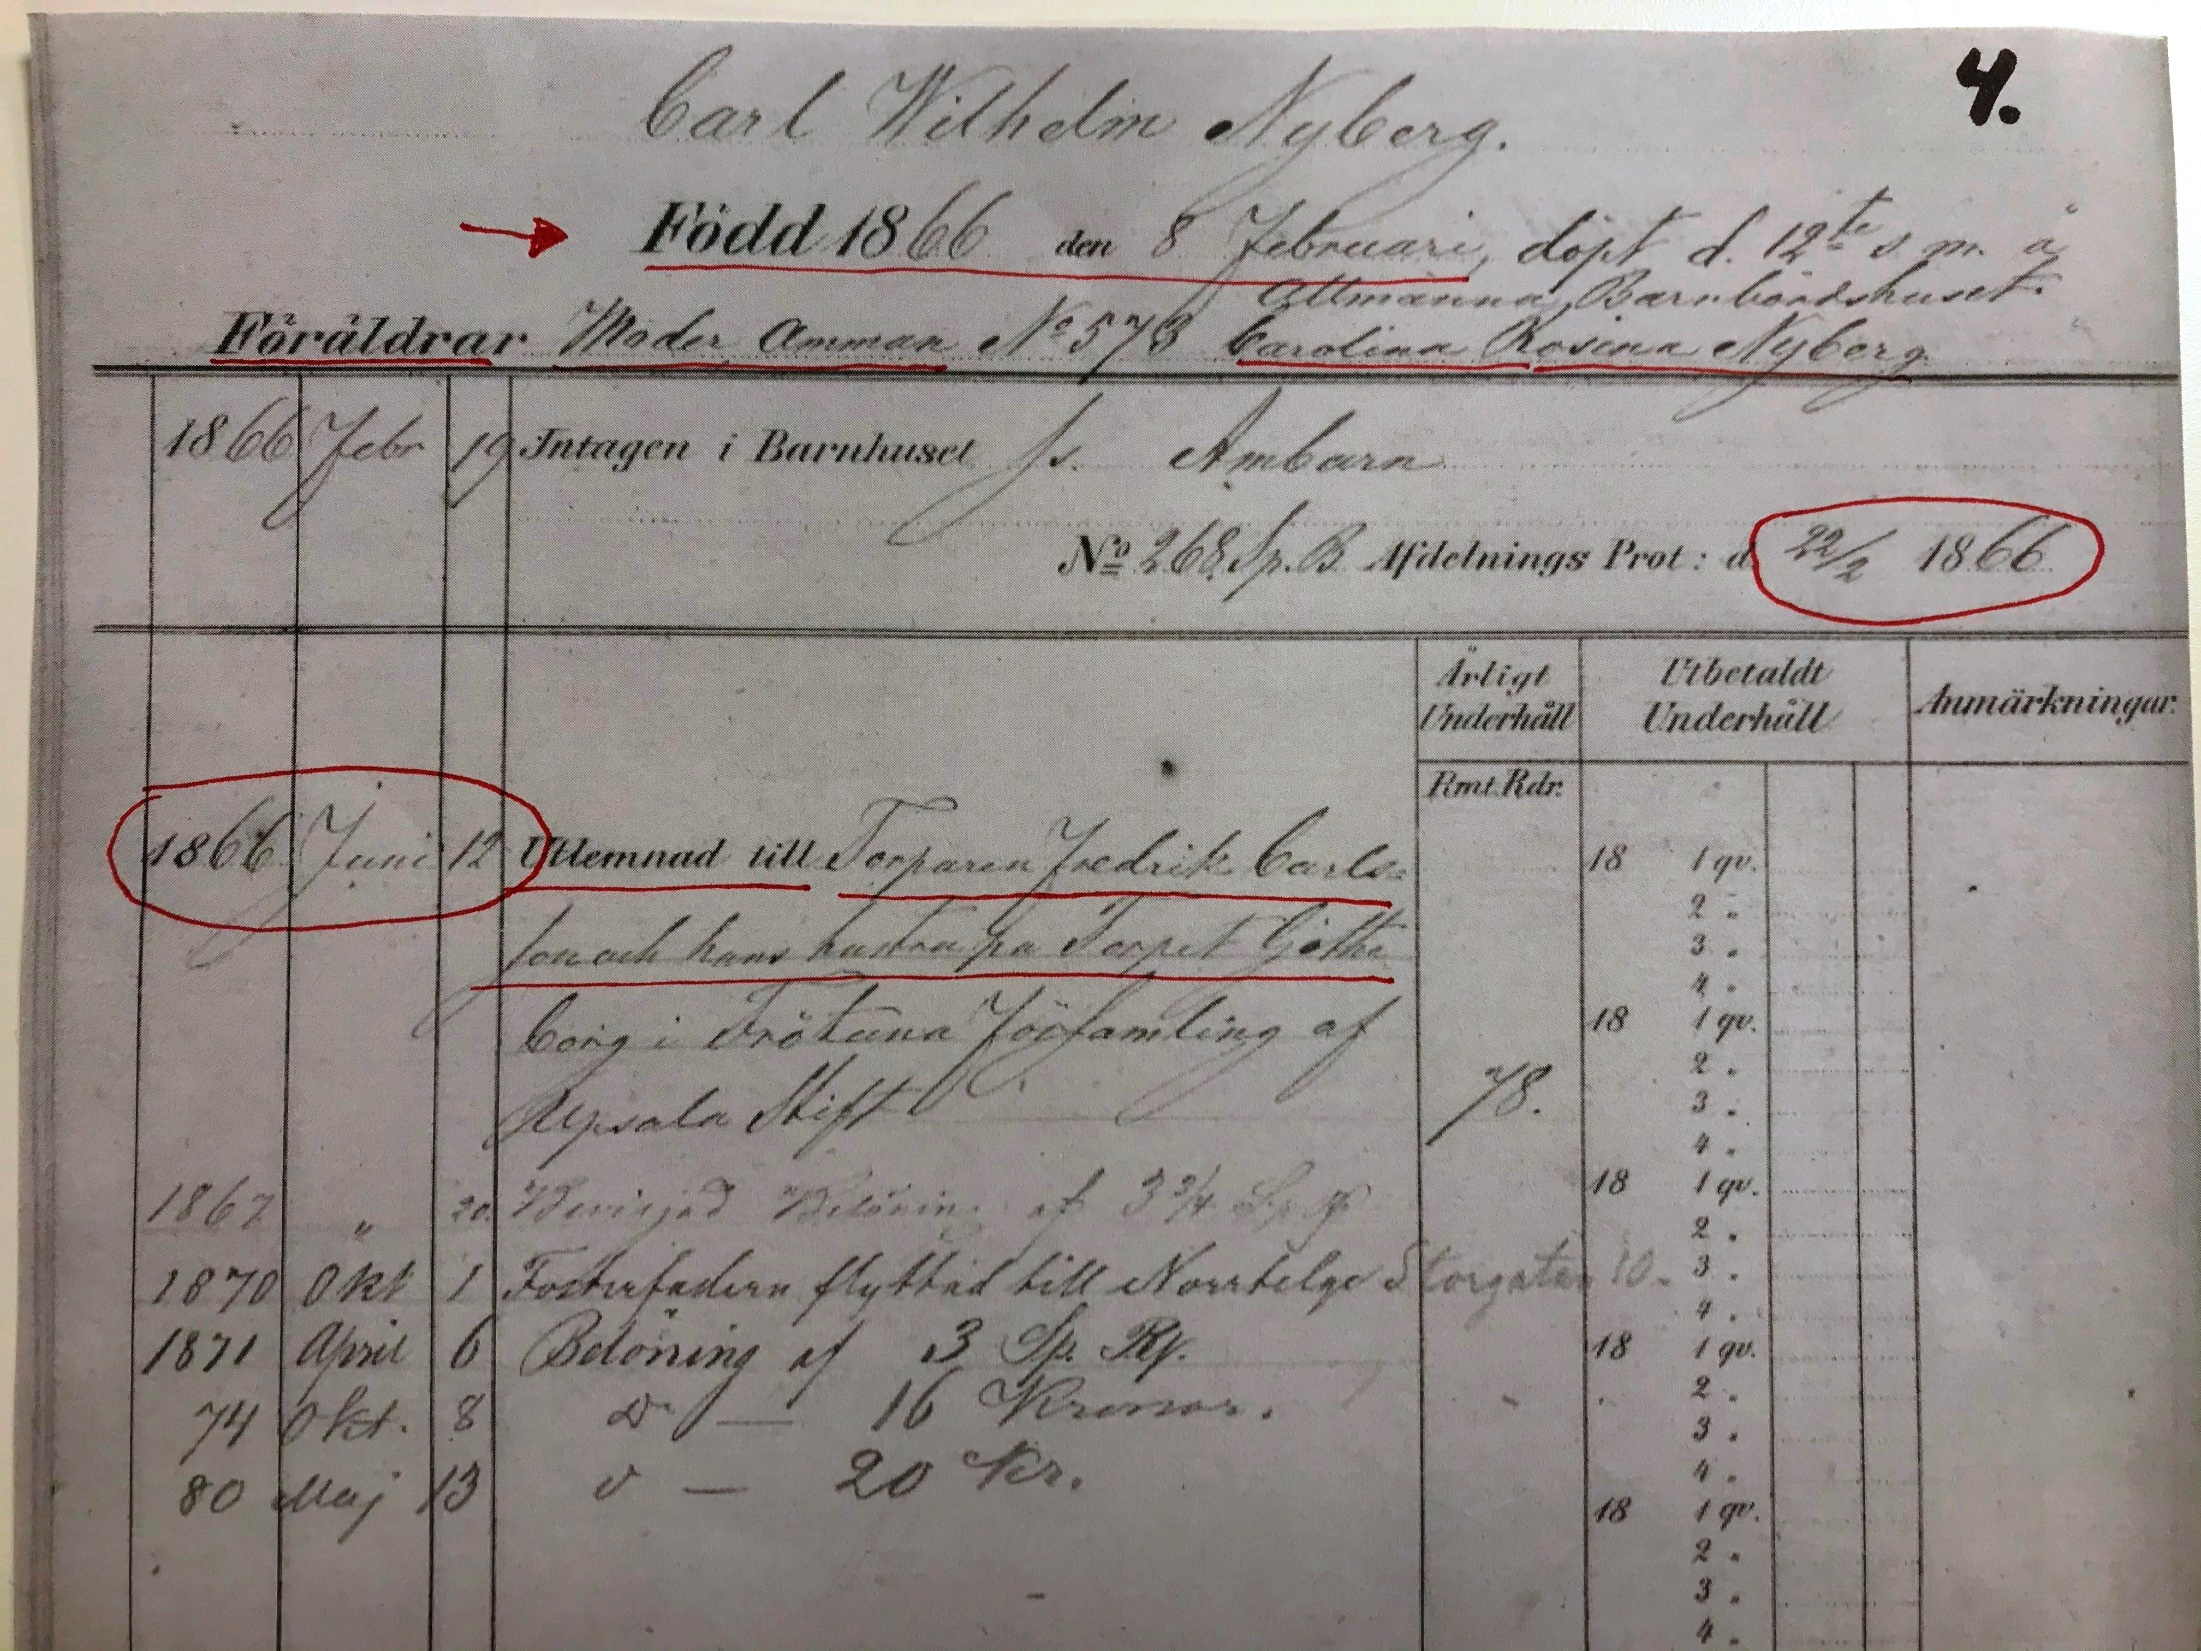 4.
Carl Wilhelm Nyberg.
Född 1866 den 8 Februari, döpt d. 12te s. m. å
Allmänna Barnbördshuset.
Föräldrar Moder Amman No 573 Carolina Rosina Nyberg
1866 Febr 19 Intagen i Barnhuset s. s. Ambarn
No 268 Sp. B. Afdelnings Prot: d. 22/2 1866
Årligt Underhåll Utbetaldt Underhåll Anmärkningar.
Rmt. Rdr.
1866 Juni 12 Utlemnad till Torparen Fredrik Carls= 18 1 qv.
2 "
son och hans hustru på Torpet Göthe 3 "
4 "
borg i Frötuna Församling af 18 1 qv.
2 "
Upsala Stift 78. 3 "
4 "
1867 " 20. Beviljad Belöning af 3 3/4 Sp. 18 1 qv.
2 "
1870 Okt 1 Fosterfadern flyttad till Norrtelge Storgatan 10. 3 "
4 "
1871 April 6 Belöning af 3 Sp. Rf. 18 1 qv.
2 "
74 Okt. 8 do — 16 Kronor. 3 "
4 "
80 Maj 13 d — 20 Kr. 18 1 qv.
2 "
3 "
4 "